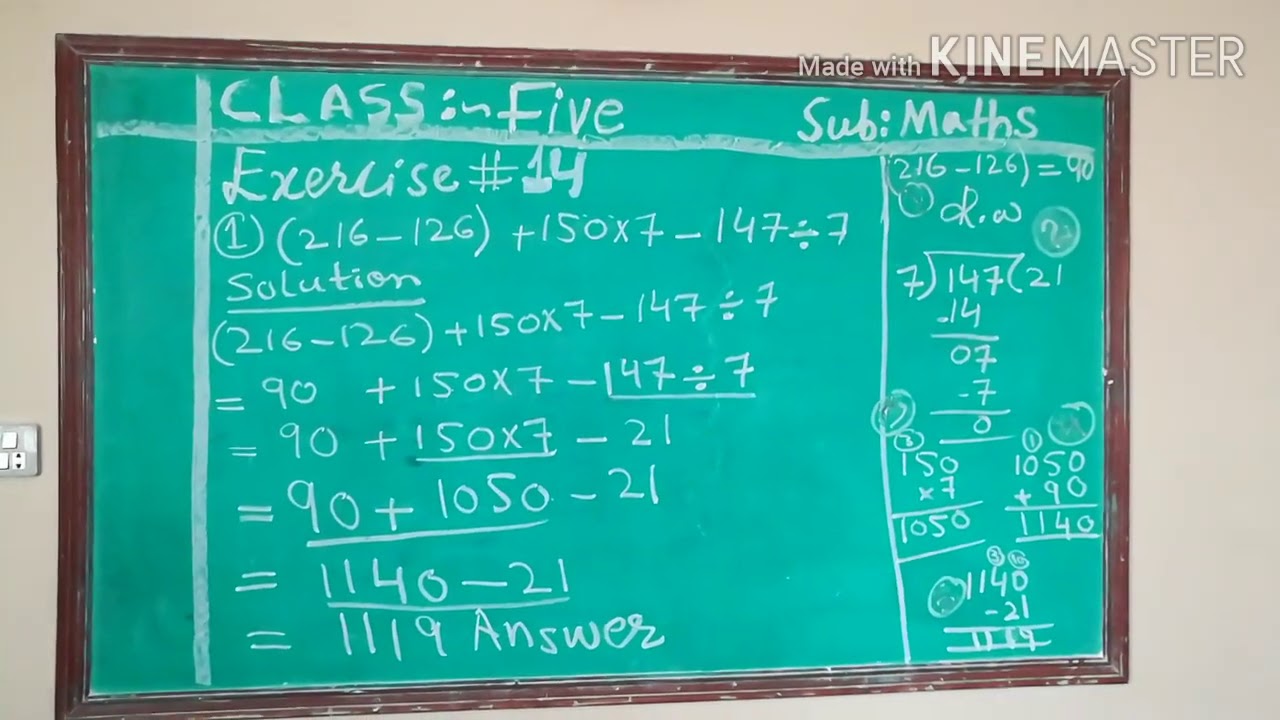 Made with KINEMASTER
CLASS:~ Five
Sub: Maths
Exercise # 14
① (216-126) +150×7 - 147÷7
Solution
(216-126) +150×7 - 147÷7
= 90 +150×7 - 147÷7
= 90 + 150×7 - 21
= 90 + 1050 - 21
= 1140 - 21
= 1119 Answer
(216-126) = 90
R.w
7) 147 (21
-14
07
-7
0
③
150
×7
1050
①
1050
+90
1140
③ ⑩
1140
-21
1119